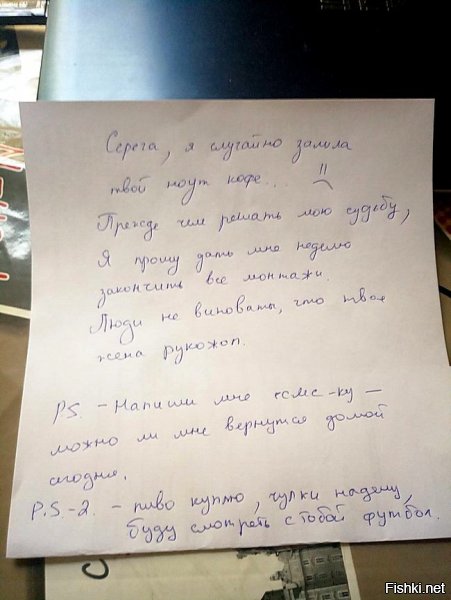 Серега, я случайно залила
твой ноут кофе...
Прежде чем решать мою судьбу,
Я прошу дать мне неделю
закончить все монтажи.
Люди не виноваты, что твоя
жена рукожоп.
P.S. - Напиши мне смс-ку -
можно ли мне вернутся домой
сегодня.
P.S-2. - пиво куплю, чулки надену,
буду смотреть с тобой футбол.
Fishki.net